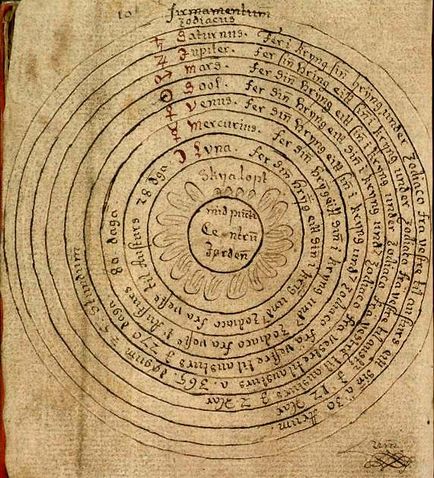 firmamentum
Zodiacus
Saturnus. Fer i kryng sin hryng under Zodiaco fra vestre til austurs eitt sin 30 Arum
Jupiter. Fer sin hring eitt sin i kryng under Zodiaco fra vestre til austurs 12 Ar
Mars. Fer sin hryng eitt sin i kryng under Zodiaco fra vestre til austurs 2 Ar
Sool. Fer sin hryng eitt sin i kryng und Zodiaco fra vestre til austurs a 365 dagum Stundum
Venus. Fer sin hryng eitt sin i kryng und Zodiaco fra vestre til austurs 270 daga
Mercurius. Fer sin hryng eitt sin i kryng und Zodiaco fra til austurs 80 daga
Lyna. Fer sin hryng eitt sin i kryng und Zodiaco fra til austurs 28 daga
Skyalopt
mid
Centru
Jorden